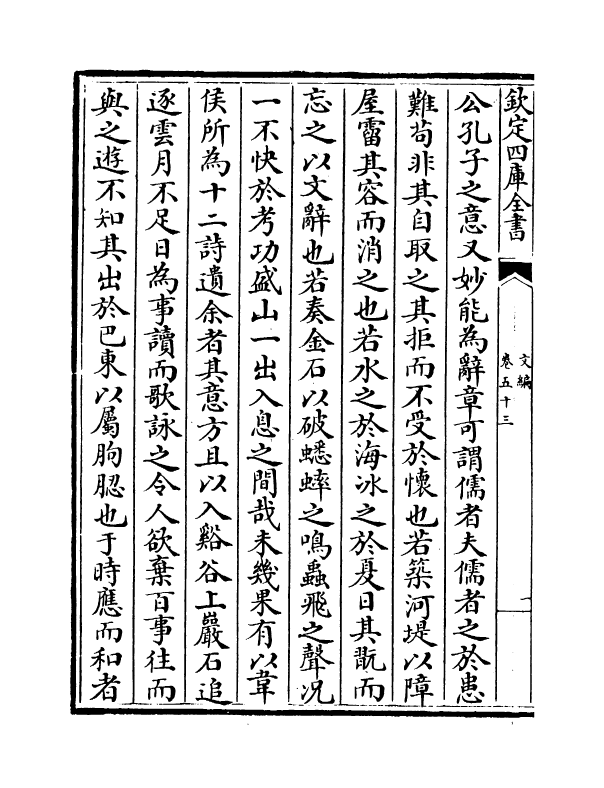 欽定四庫全書
文編
卷五十三
一
公孔子之意又妙能為辭章可謂儒者夫儒者之於患
難苟非其自取之其拒而不受於懷也若築河堤以障
屋霤其容而消之也若水之於海冰之於夏日其翫而
忘之以文辭也若奏金石以破蟋蟀之鳴蟲飛之聲況
一不快於考功盛山一出入息之間哉未幾果有以韋
侯所為十二詩遺余者其意方且以入谿谷上巖石追
逐雲月不足日為事讀而歌詠之令人欲棄百事往而
與之遊不知其出於巴東以屬朐䏰也于時應而和者